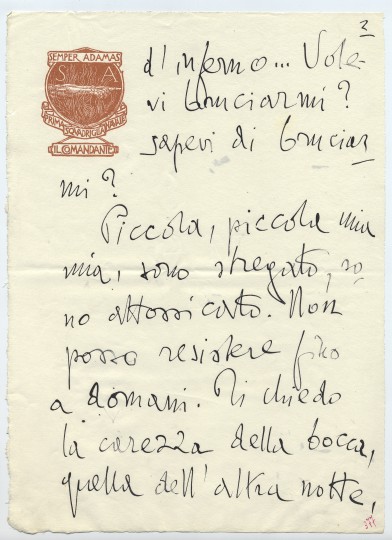 2
SEMPER ADAMAS
S A
PRIMA SQUADRIGLIA NAVALE
IL COMANDANTE
d'inferno... Vole-
vi bruciarmi?
sapevi di bruciar
mi?
Piccola, piccola mia
mia, sono stregato, so
no attossicato. Non
posso resistere fino
a domani. Ti chiedo
la carezza della bocca,
quella dell'altra notte,